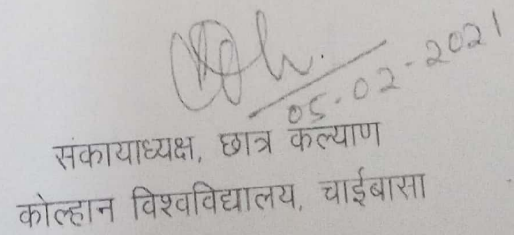 05-02-2021
संकायाध्यक्ष, छात्र कल्याण
कोल्हान विश्वविद्यालय, चाईबासा